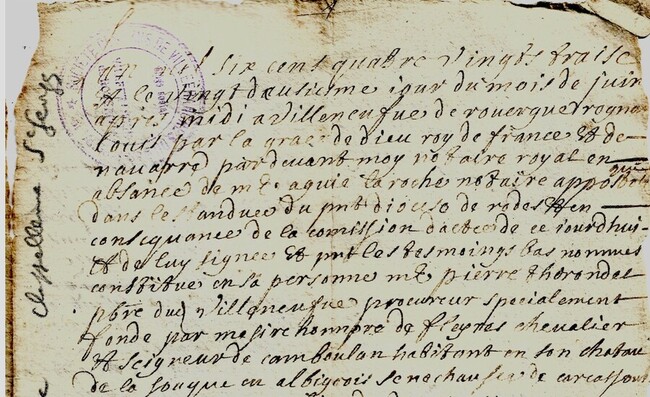 six cent quatre vingts traise
et le vingt deusiesme jour du mois de juin
apres midi a villeneufve de rouergue regnant
Louis par la grace de dieu roy de france et de
navarre pardevant moy notaire royal en
absance de mе aquie laroche notaire appostolique
dans lestandue du pnt dioceso de rodes et en
consequance de la comission dacte de ce jourdhui
et de luy signee et pnt les tesmoings bas nommes
constitue en sa personne me pierre thorondel
pbre dud villeneufve procureur specialement
fonde par messire honnore de fleyres chevalier
et seigneur de camboulan habitant en son chateau
de la bouque en albigeois senechaussee de carcassonne
Chappellenie St